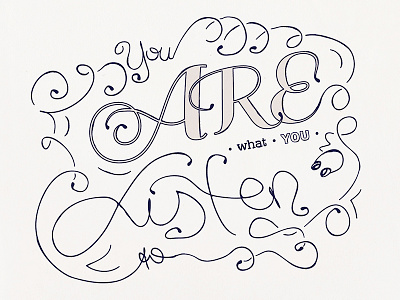 You
ARE
· what · YOU ·
Listen
to